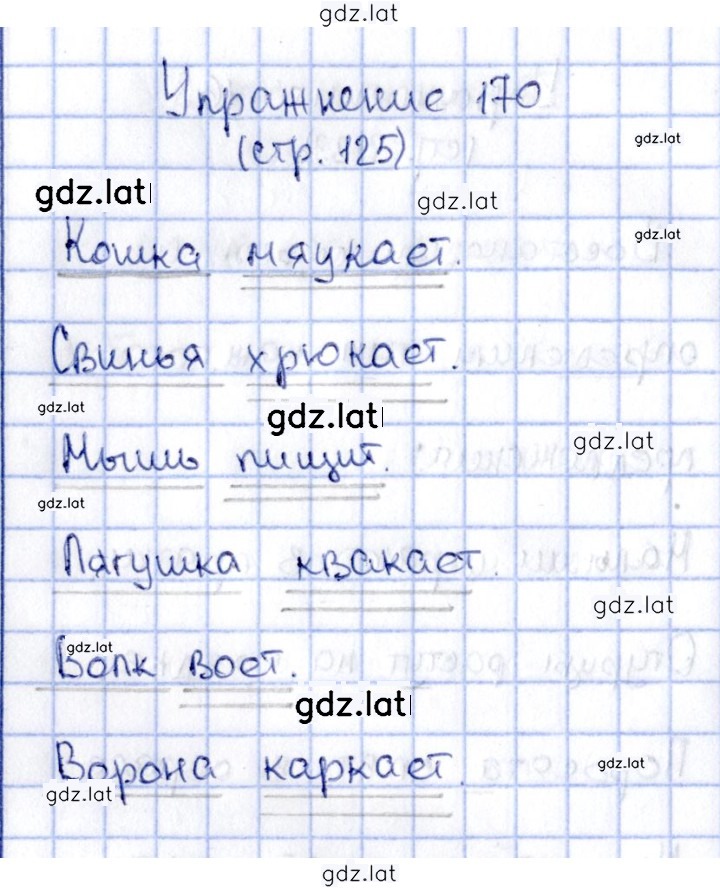 gdz.lat
Упражнение 170
gdz.lat
(стр. 125)
gdz.lat
gdz.lat
gdz.lat
Кошка мяукает.
Свинья хрюкает.
gdz.lat
gdz.lat
gdz.lat
Мышь пищит.
gdz.lat
Лягушка квакает.
gdz.lat
gdz.lat
Волк воет.
gdz.lat
Ворона каркает.
gdz.lat
gdz.lat
gdz.lat